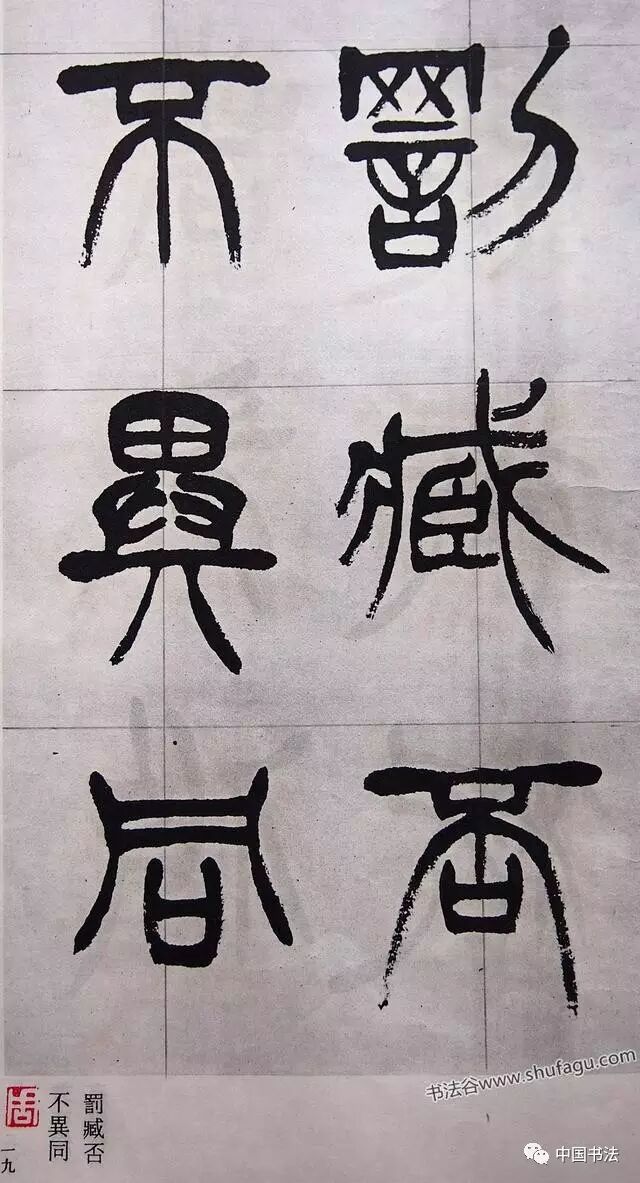 罰臧否
不異同
书法谷www.shufagu.com
罰臧否
不異同
一九
中国书法